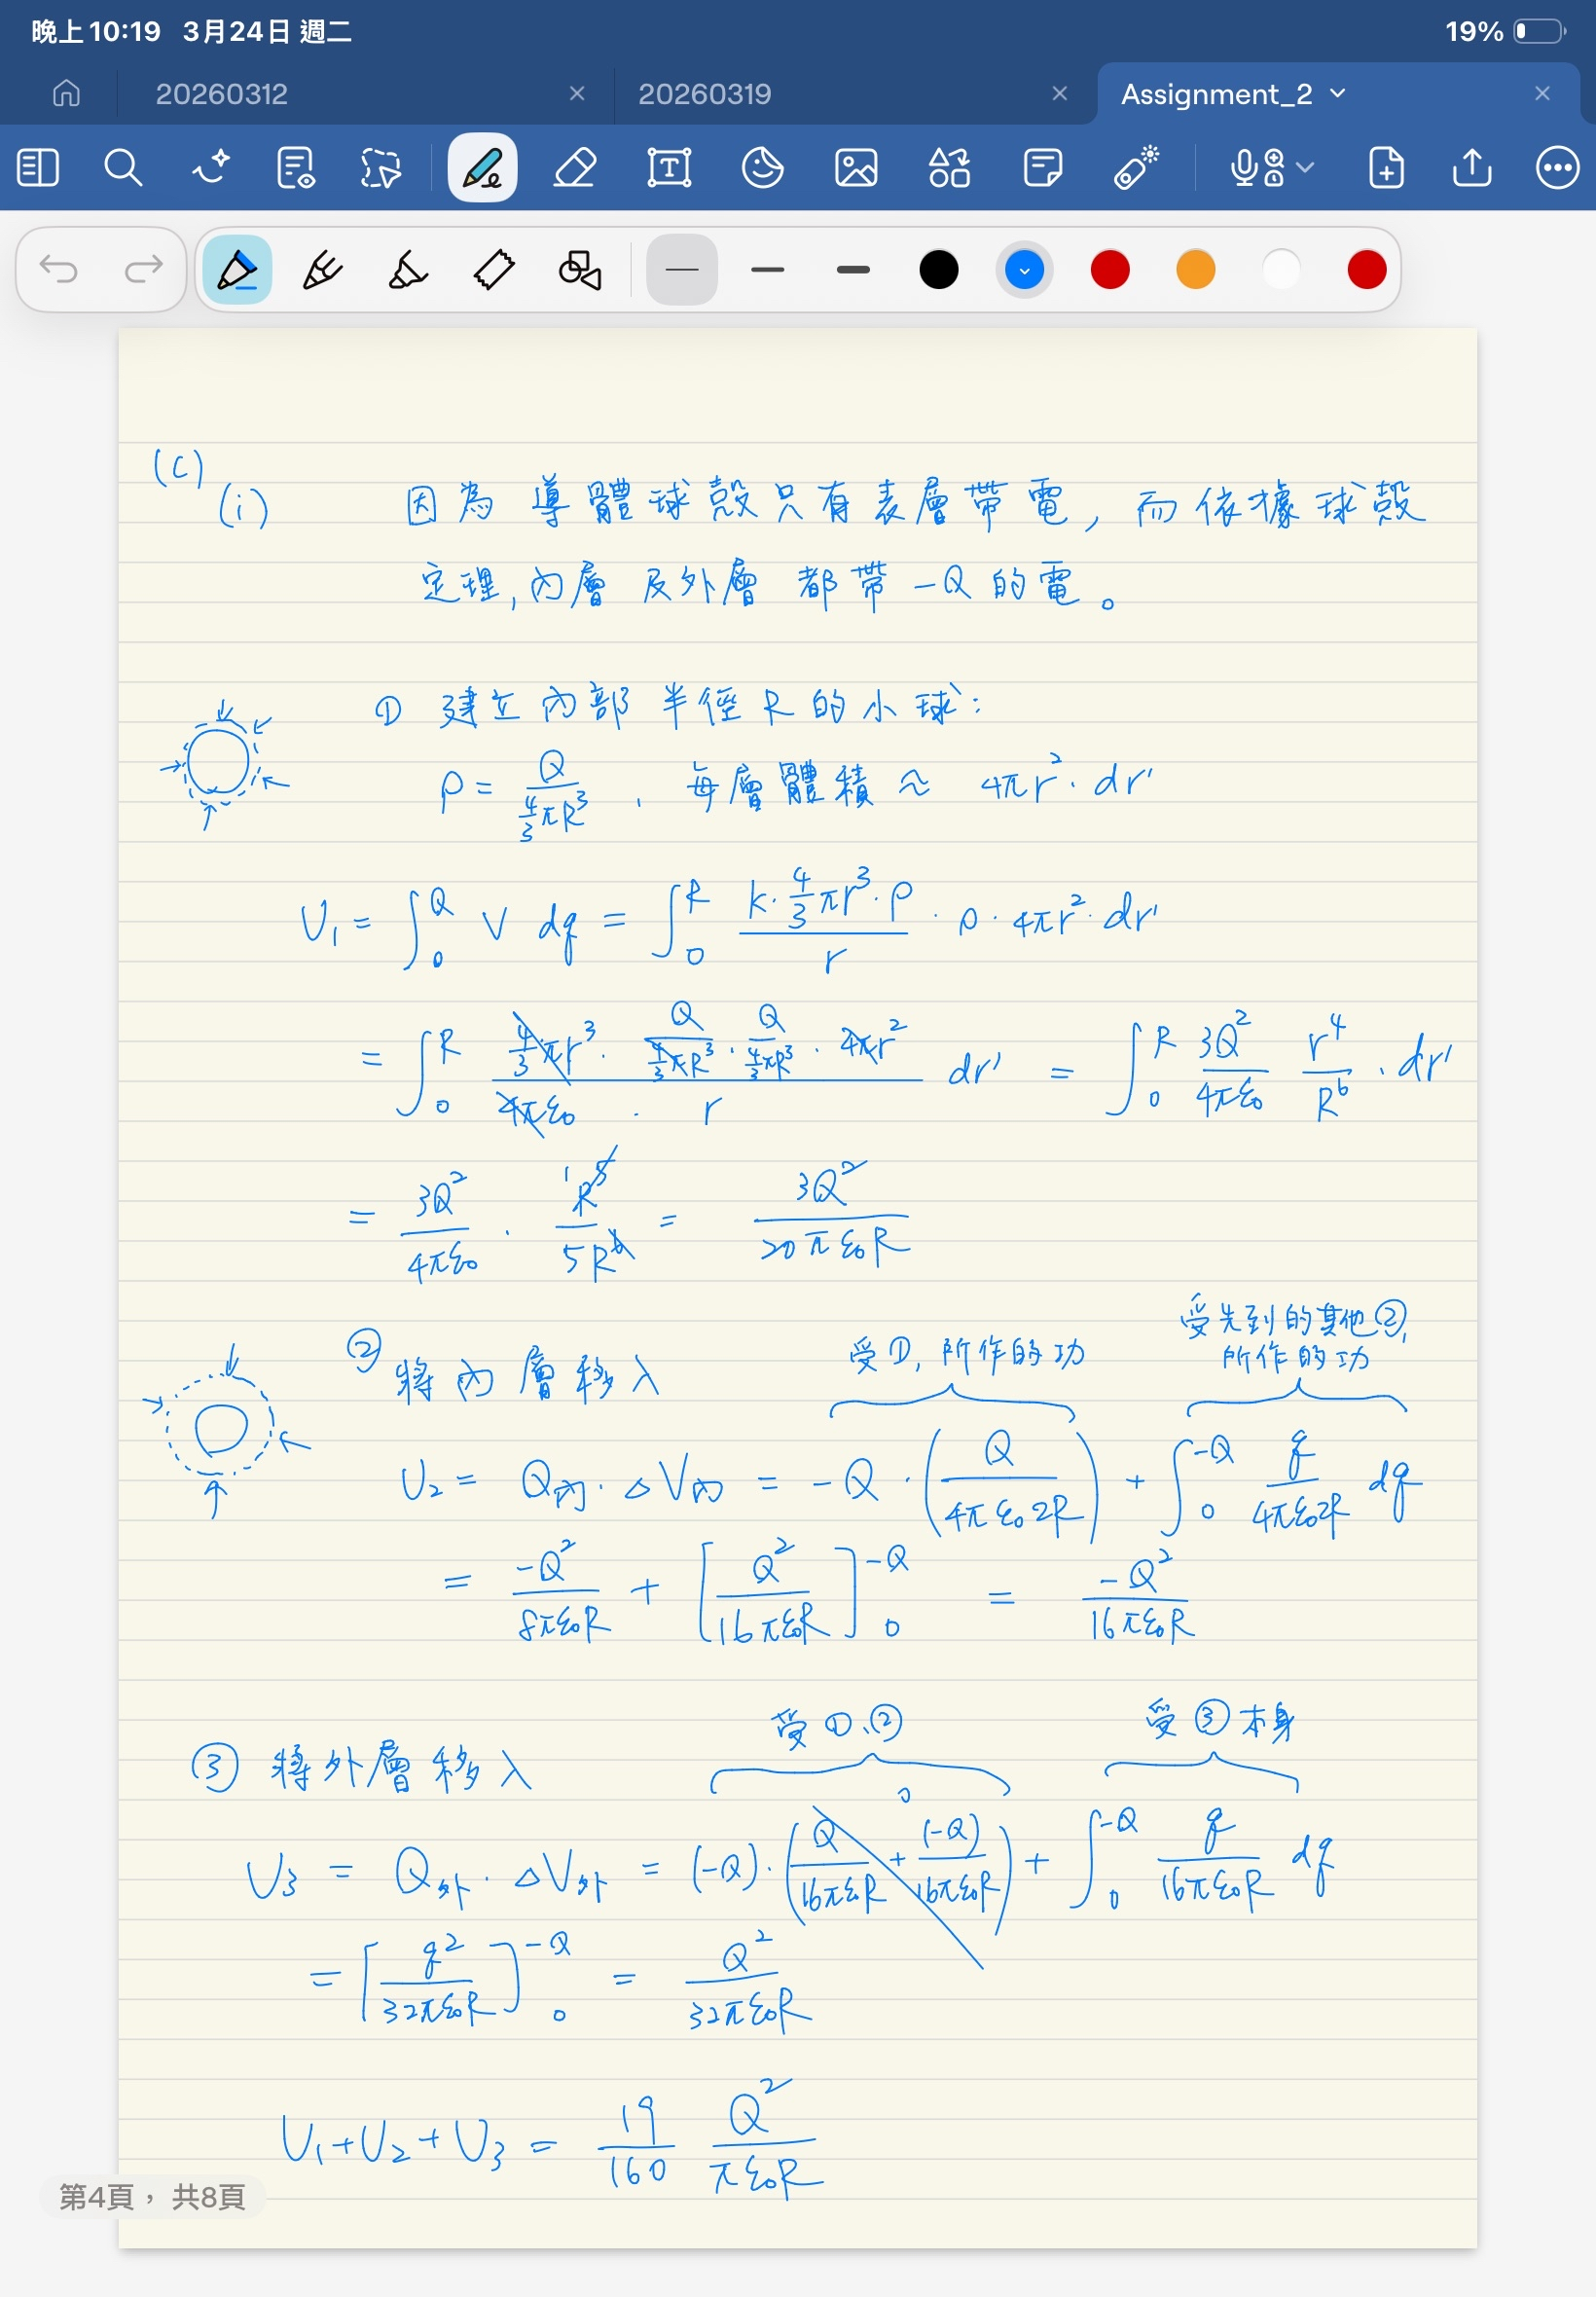 晚上10:19 3月24日 週二 19%
20260312 20260319 Assignment_2
(c)
(i) 因為導體球殼只有表層帶電, 而依據球殼
定理, 內層及外層 都帶 -Q 的電。
① 建立內部半徑 R 的小球:
ρ = Q / (4/3 πR³) , 每層體積 ≈ 4πr² · dr'
U₁ = ∫₀^Q V dq = ∫₀^R (k · 4/3 πr³ · ρ) / r · ρ · 4πr² · dr'
= ∫₀^R (4/3 πr³ · Q/(4/3 πR³) · Q/(4/3 πR³) · 4πr²) / (4πε₀ · r) dr' = ∫₀^R 3Q²/(4πε₀) r⁴/R⁶ · dr'
= 3Q²/(4πε₀) · 1 R⁵/(5R⁶) = 3Q²/(20πε₀R)
受先到的其他②,
② 將內層移入 受①, 所作的功 所作的功
U₂ = Q內 · △V內 = -Q · (Q/(4πε₀2R)) + ∫₀^-Q q/(4πε₀2R) dq
= -Q²/(8πε₀R) + [Q²/(16πε₀R)]₀^-Q = -Q²/(16πε₀R)
受①、② 受③本身
③ 將外層移入
0
U₃ = Q外 · △V外 = (-Q) · (Q/(16πε₀R) + (-Q)/(16πε₀R)) + ∫₀^-Q q/(16πε₀R) dq
= [q²/(32πε₀R)]₀^-Q = Q²/(32πε₀R)
U₁+U₂+U₃ = 19/160 Q²/(πε₀R)
第4頁， 共8頁